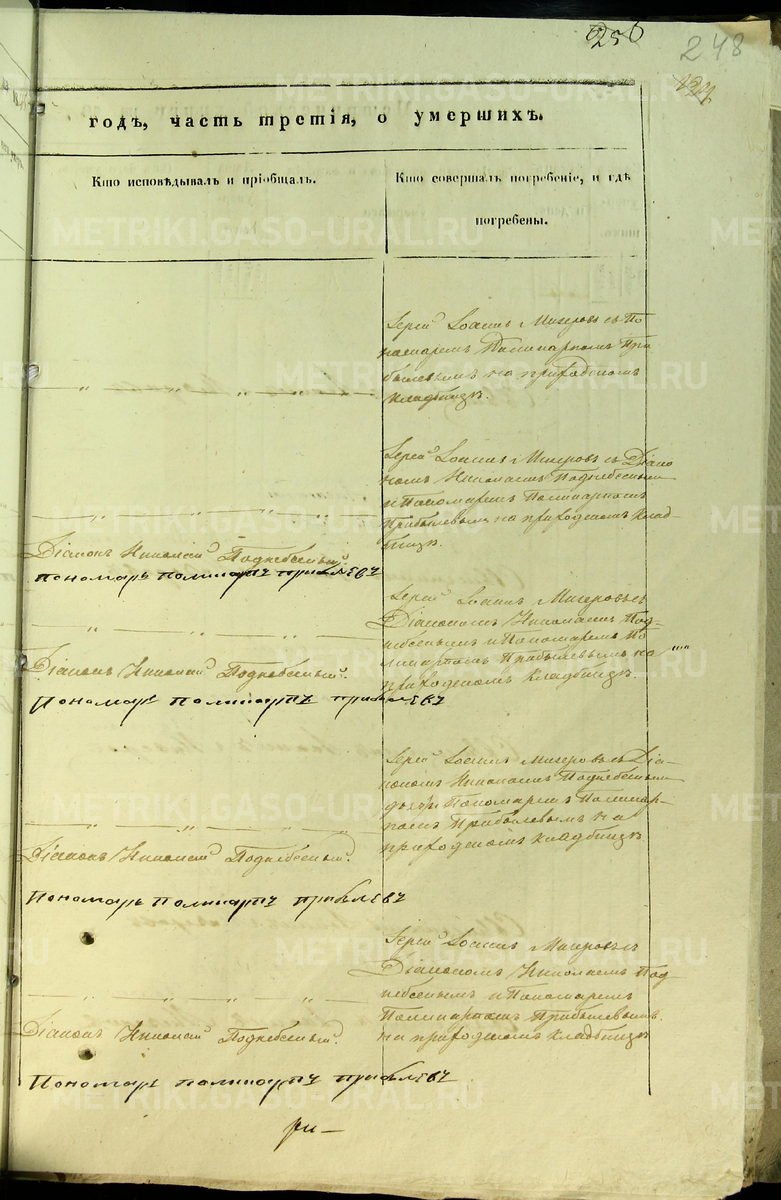 256
248
годъ, часть третія, о умершихъ.
Кто исповѣдывалъ и пріобщалъ.
Кто совершалъ погребеніе, и гдѣ
погребены.
Іерей Іоаннъ Мигеровъ съ По
номаремъ Поликарпомъ При
былевымъ на приходскомъ
кладбищѣ.
Іерей Іоаннъ Мигеровъ съ Діако
номъ Николаемъ Поднебеснымъ
и Пономаремъ Поликарпомъ
Прибылевымъ на приходскомъ клад-
бищѣ.
Діаконъ Николай Поднебесный.
Пономарь Поликарпъ Прибылевъ
Іерей Іоаннъ Мигеровъ съ
Діакономъ Николаемъ Под-
небеснымъ и Пономаремъ По
ликарпомъ Прибылевымъ на
приходскомъ кладбищѣ.
Діаконъ Николай Поднебесный.
Пономарь Поликарпъ Прибылевъ
Іерей Іоаннъ Мигеровъ съ Діа-
кономъ Николаемъ Поднебеснымъ
Пономаремъ Поликар-
помъ Прибылевымъ на
приходскомъ кладбищѣ
Діаконъ Николай Поднебесный.
Пономарь Поликарпъ Прибылевъ
Іерей Іоаннъ Мигеровъ съ
Діакономъ Николаемъ Под-
небеснымъ и Пономаремъ
Поликарпомъ Прибылевымъ
на приходскомъ кладбищѣ
Діаконъ Николай Поднебесный.
Пономарь Поликарпъ Прибылевъ
METRIKI.GASO-URAL.RU